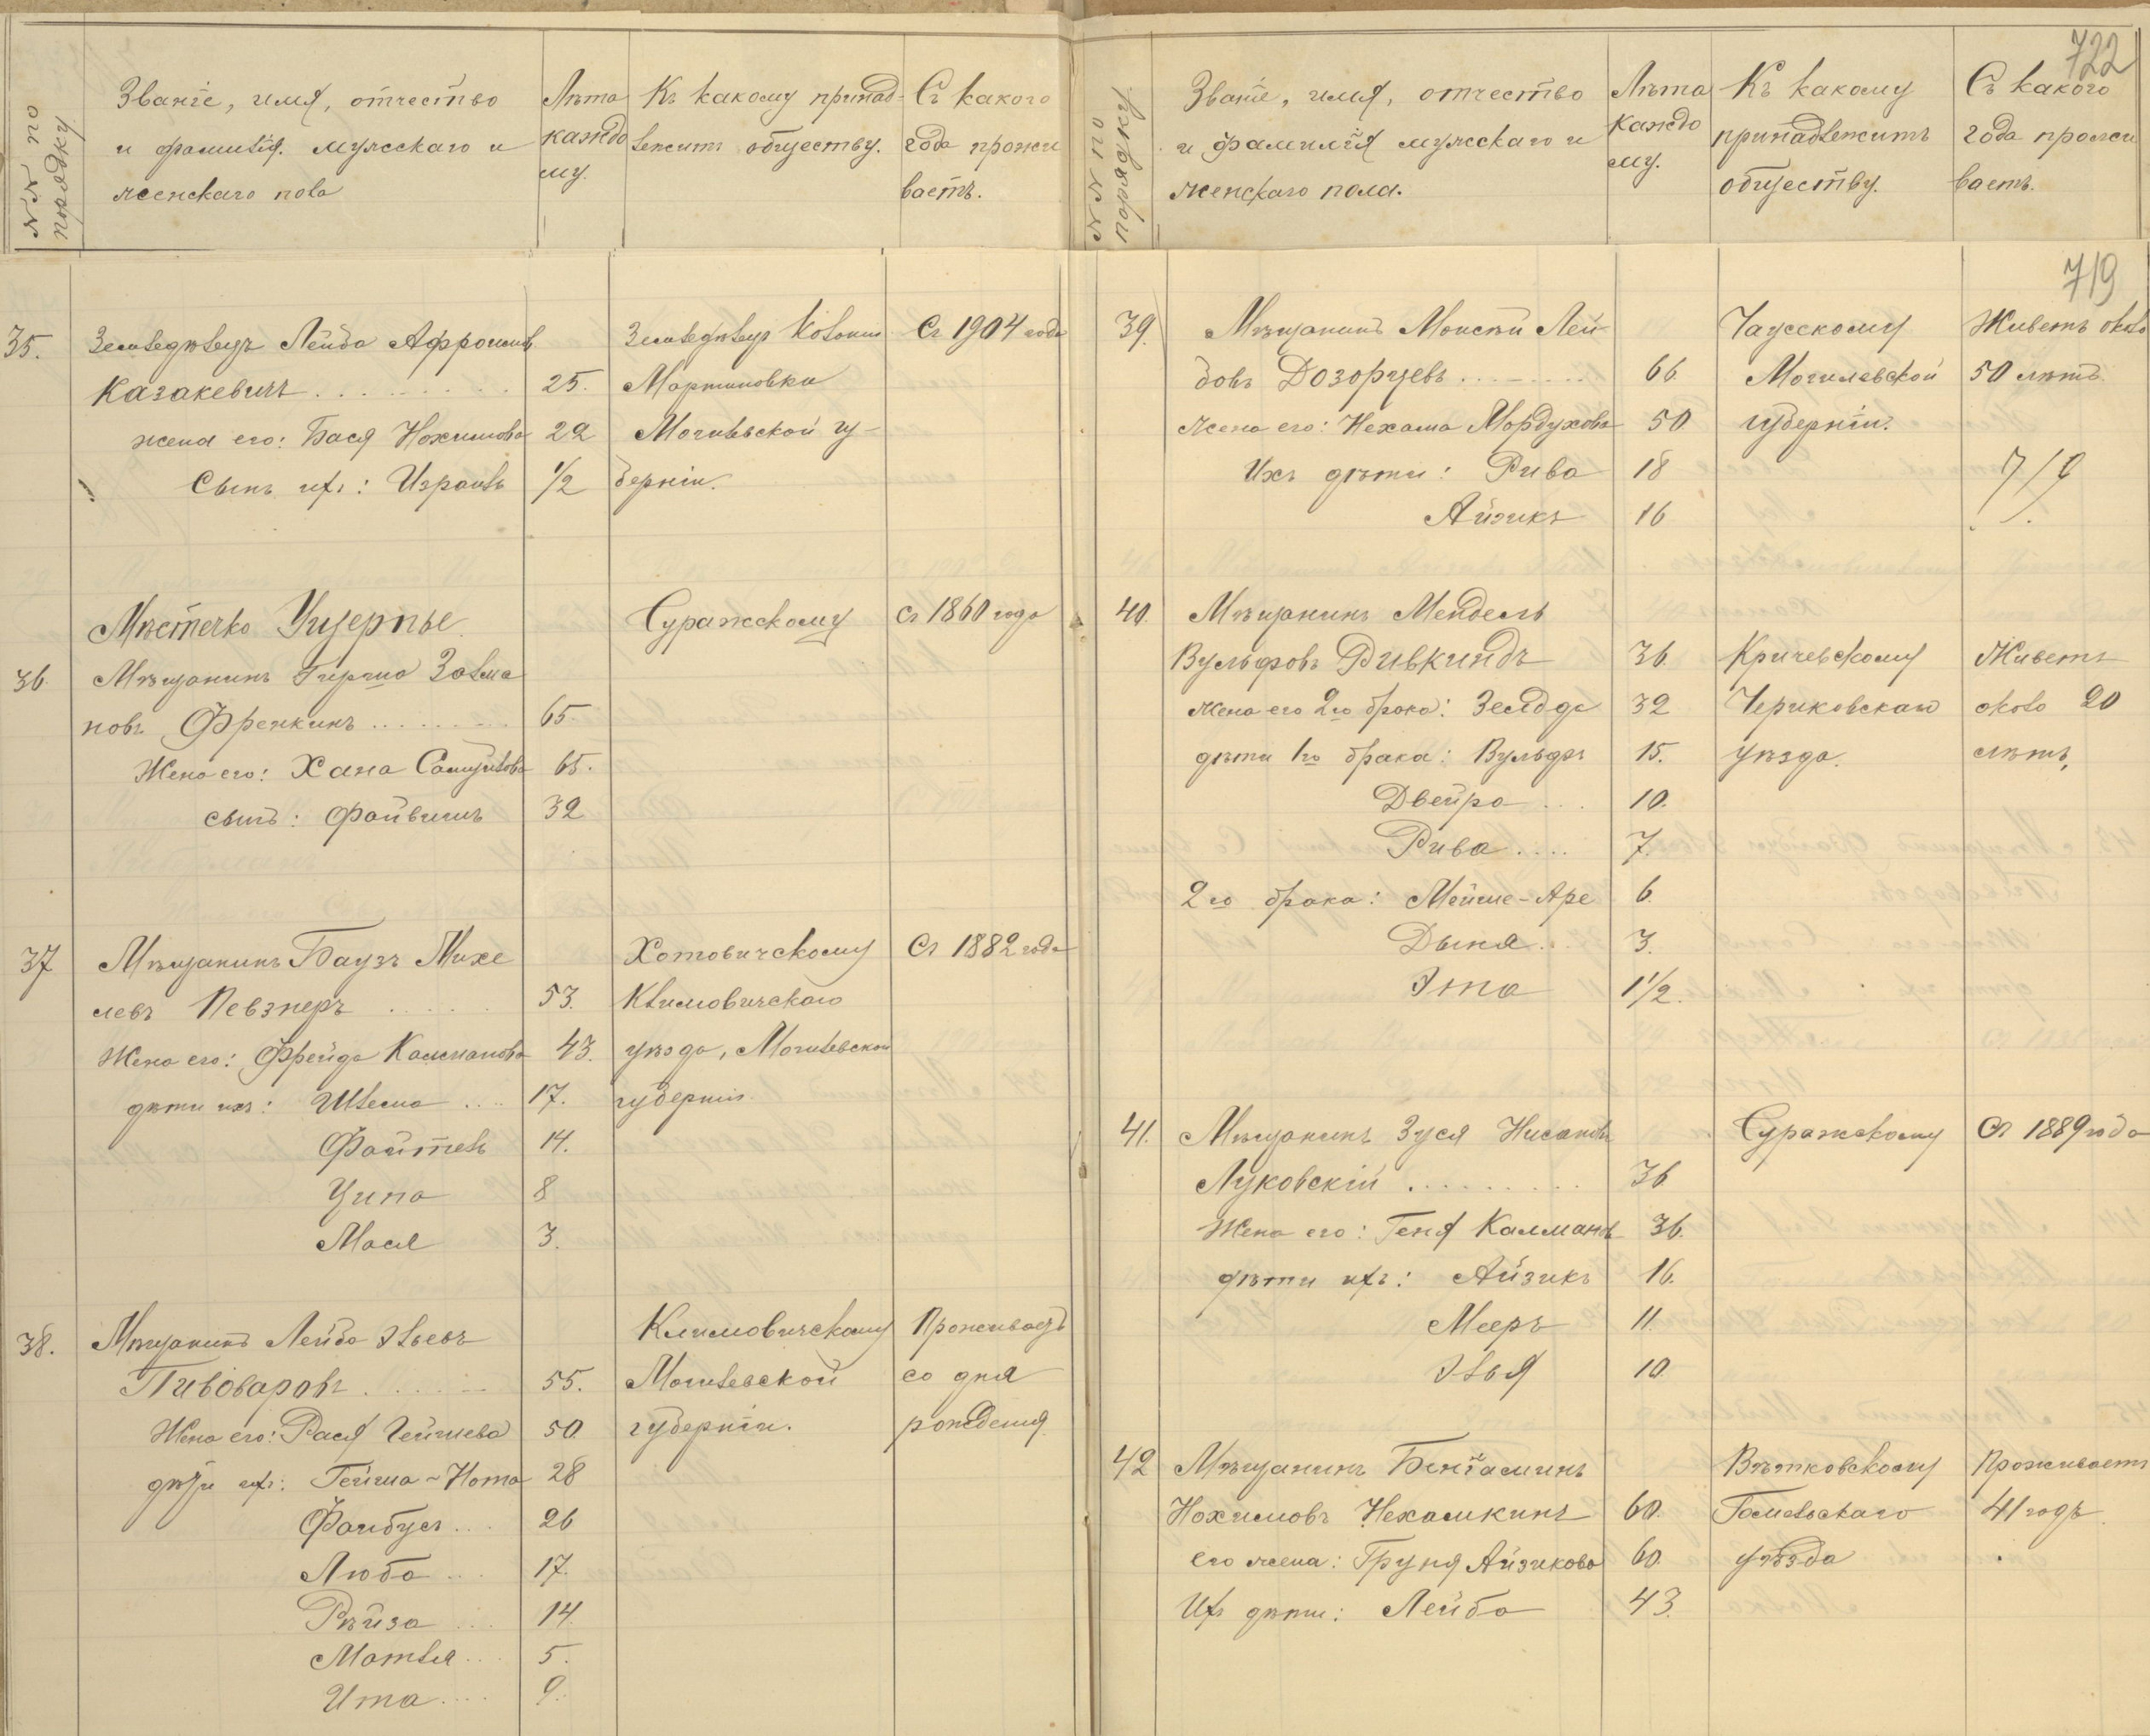 №№ по порядку
Званіе, имя, отчество и фамилія мужскаго и женскаго пола
Лѣта каждо му.
Къ какому принад- лежитъ обществу.
Съ какого года прожи ваетъ.
35. Земледѣлецъ Лейба Афроимовъ Земледѣлецъ колоніи Съ 1904 года
Казакевичъ 25. Мартиновки
жена его: Бася Нохимова 22 Могилевской гу-
Сынъ ихъ: Израиль 1/2 берніи.
Мѣстечко Ущерпье. Суражскому съ 1860 года
36. Мѣщанинъ Гирша Залма
новъ Френкинъ 65.
Жена его: Хана Самуилова 65.
сынъ: Файвишъ 32
37 Мѣщанинъ Баузъ Михе Хотовичскому Съ 1882 года
левъ Певзнеръ 53. Климовичскаго
Жена его: Фрейда Калманова 43. уѣзда, Могилевской
дѣти ихъ: Шлема 17. губерніи
Файтель 14.
Ципа 8
Мася 3.
38. Мѣщанинъ Лейба Эльевъ Климовичскому Проживаетъ
Пивоваровъ 55. Могилевской со дня
Жена его: Рася Гейшева 50. губерніи. рожденія
дѣти ихъ: Гейша-Нота 28
Файбусъ 26
Люба 17.
Рѣйза 14
Матля 5.
Ита 9.
722
№№ по порядку
Званіе, имя, отчество и фамилія мужскаго и женскаго пола.
Лѣта каждо му.
Къ какому принадлежитъ обществу.
Съ какого года прожи ваетъ.
719
39. Мѣщанинъ Монсѣй Лей- Чаусскому Живетъ около
бовъ Дозорцевъ 66. Могилевской 50 лѣтъ.
жена его: Нехама Мордухова 50 губерніи.
Ихъ дѣти: Рива 18 719
Айзикъ 16
40. Мѣщанинъ Мендель
Вульфовъ Ривкиндъ 36. Кричевскому Живетъ
жена его 2го брака: Зелда 32 Чериковскаго около 20
дѣти 1го брака: Вульфъ 15. уѣзда. лѣтъ.
Двейра 10.
Рива 7.
2го брака: Мейше-Аре 6.
Дыня 3.
Эта 1 1/2.
41. Мѣщанинъ Зуся Нисановъ Суражскому Съ 1889 года
Луковскій 36
Жена его: Геня Калманов 36.
дѣти ихъ: Айзикъ 16.
Мееръ 11.
Элья 10.
42 Мѣщанинъ Беніаминъ Вѣтковскому Проживаетъ
Нохимовъ Нехамкинъ 60. Гомельскаго 41 годъ.
его жена: Груня Айзикова 60. уѣзда
Ихъ дѣти: Лейба 43.